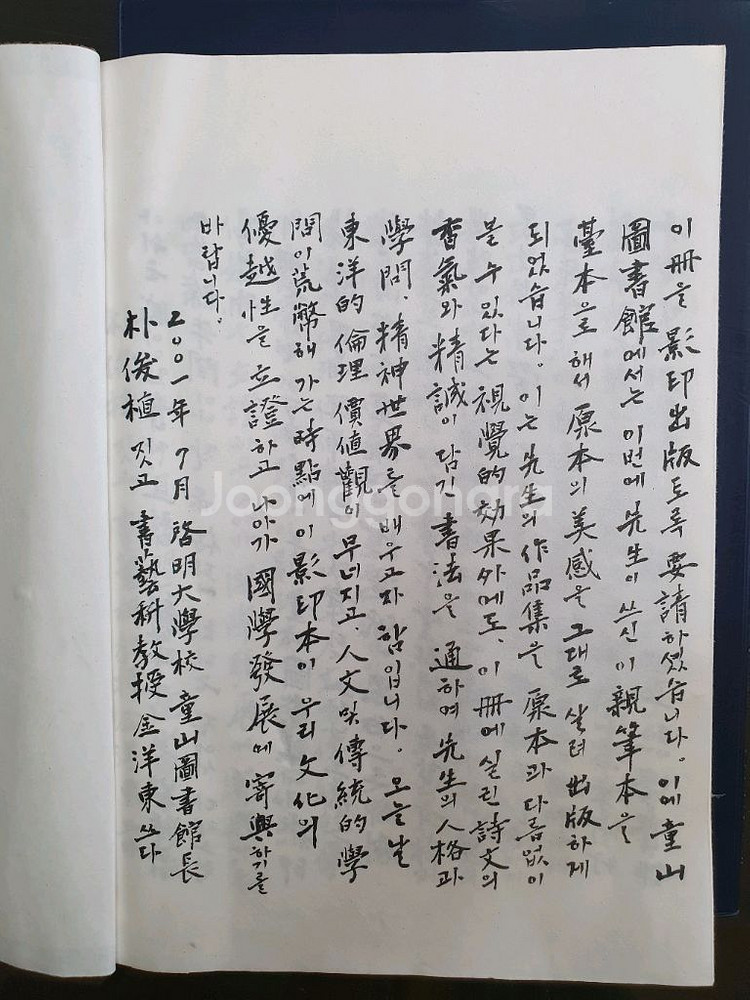 이 冊을 影印出版토록 要請하셨습니다. 이에 童山
圖書館에서는 이번에 先生이 쓰신 이 親筆本을
臺本으로 해서 原本의 美感을 그대로 살려 出版하게
되었습니다. 이는 先生의 作品集을 原本과 다름없이
볼 수 있다는 視覺的 効果外에도, 이 冊에 실린 詩文의
香氣와 精誠이 담긴 書法을 通하여 先生의 人格과
學問, 精神世界를 배우고자 함입니다. 오늘날
東洋的 倫理 價値觀이 무너지고, 人文 및 傳統的 學
問이 荒弊해 가는 時點에 이 影印本이 우리 文化의
優越性을 立證하고 나아가 國學發展에 寄與하기를
바랍니다.
二○○一年 7月 啓明大學校 童山圖書館長
朴俊植 짓고 書藝科教授 金洋東 쓰다
Joonggonara